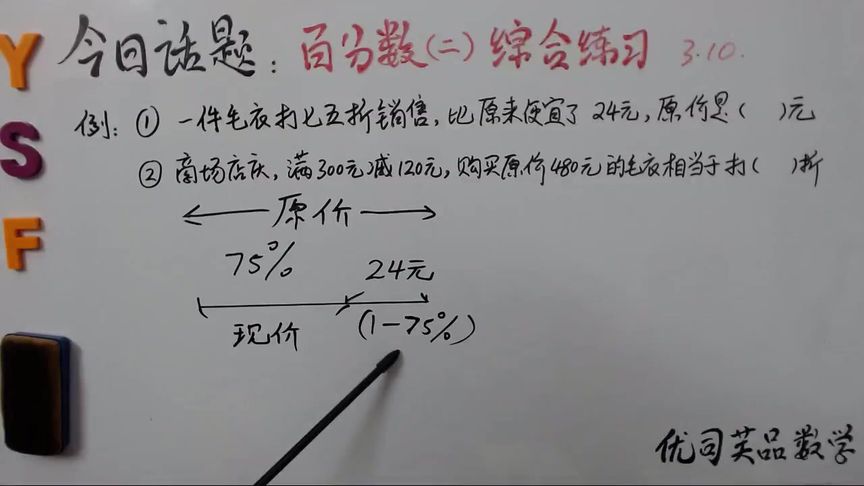 今日话题：百分数(二)综合练习 3.10.
例：① 一件毛衣打七五折销售，比原来便宜了24元，原价是(  )元
② 商场店庆，满300元减120元，购买原价480元的毛衣相当于打(  )折
原价
75% 24元
现价 (1-75%)
优司芙品数学
Y
S
F